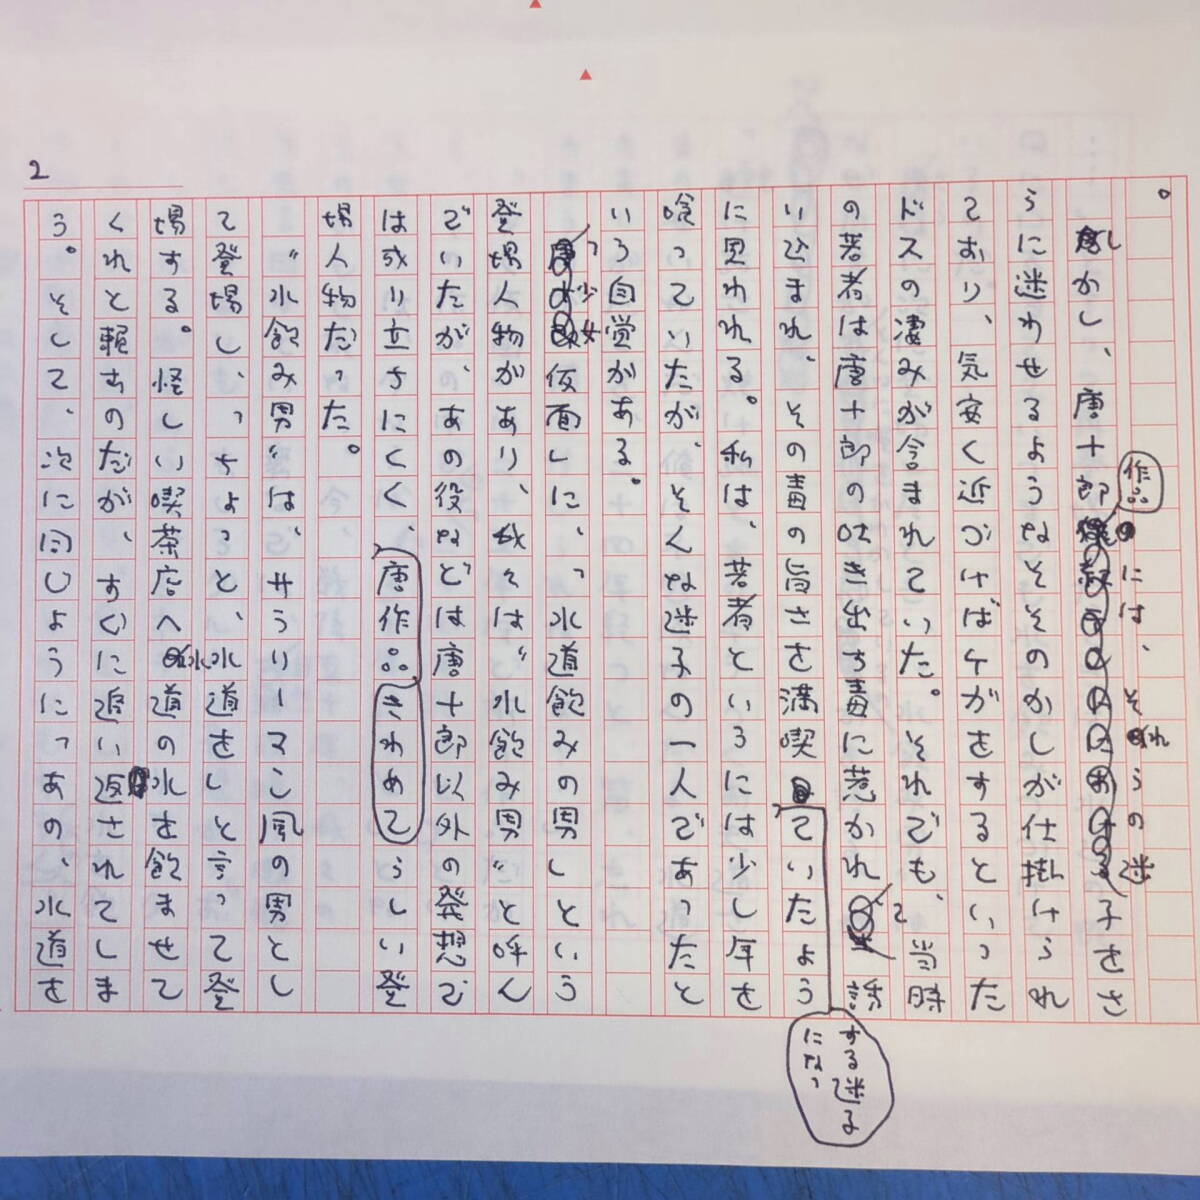 2
。
しかし、唐十郎作品には、それらの迷子をさ
らに迷わせるようなそそのかしが仕掛けられ
ており、気安く近づけばケガをするといった
ドスの凄みが含まれていた。それでも、当時
の若者は唐十郎の吐き出す毒に惹かれて誘
い込まれ、その毒の旨さを満喫する迷子になっていたよう
に思われる。私は、若者というには少し年を
喰っていたが、そんな迷子の一人であったと
いう自覚がある。
「少女仮面」に、「水道飲みの男」という
登場人物があり、我々は〝水飲み男〟と呼ん
でいたが、あの役などは唐十郎以外の発想で
は成り立ちにくく、唐作品きわめてらしい登
場人物だった。
〝水飲み男〟は、サラリーマン風の男とし
て登場し、「ちょっと、水道を」と言って登
場する。怪しい喫茶店へ水道の水を飲ませて
くれと頼むのだが、すぐに追い返されてしま
う。そして、次に同じように「あの、水道を